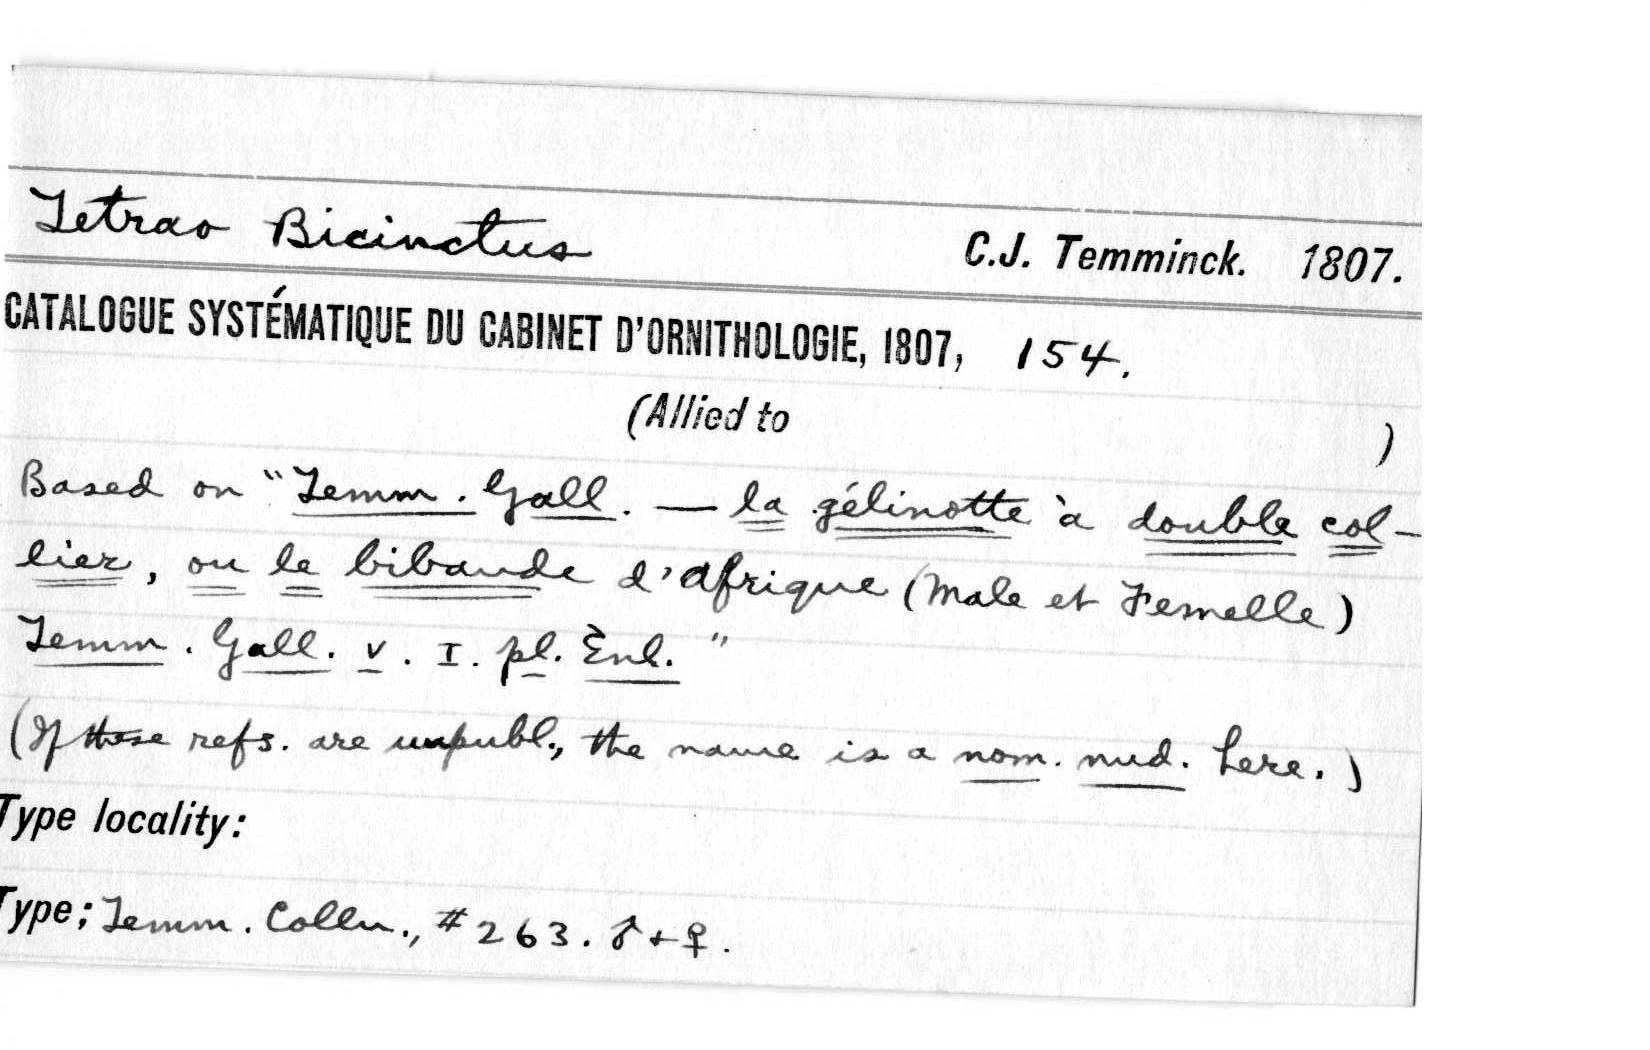 Tetrao Bicinctus C.J. Temminck. 1807.
CATALOGUE SYSTÉMATIQUE DU CABINET D'ORNITHOLOGIE, 1807, 154.
(Allied to )
Based on "Temm. Gall. — la gélinotte à double col-
lier, ou le bibande d'afrique (Male et Femelle)
Temm. Gall. v. I. pl. Enl."
(If these refs. are unpubl., the name is a nom. nud. here.)
Type locality:
Type; Temm. Colln., #263. ♂ + ♀.